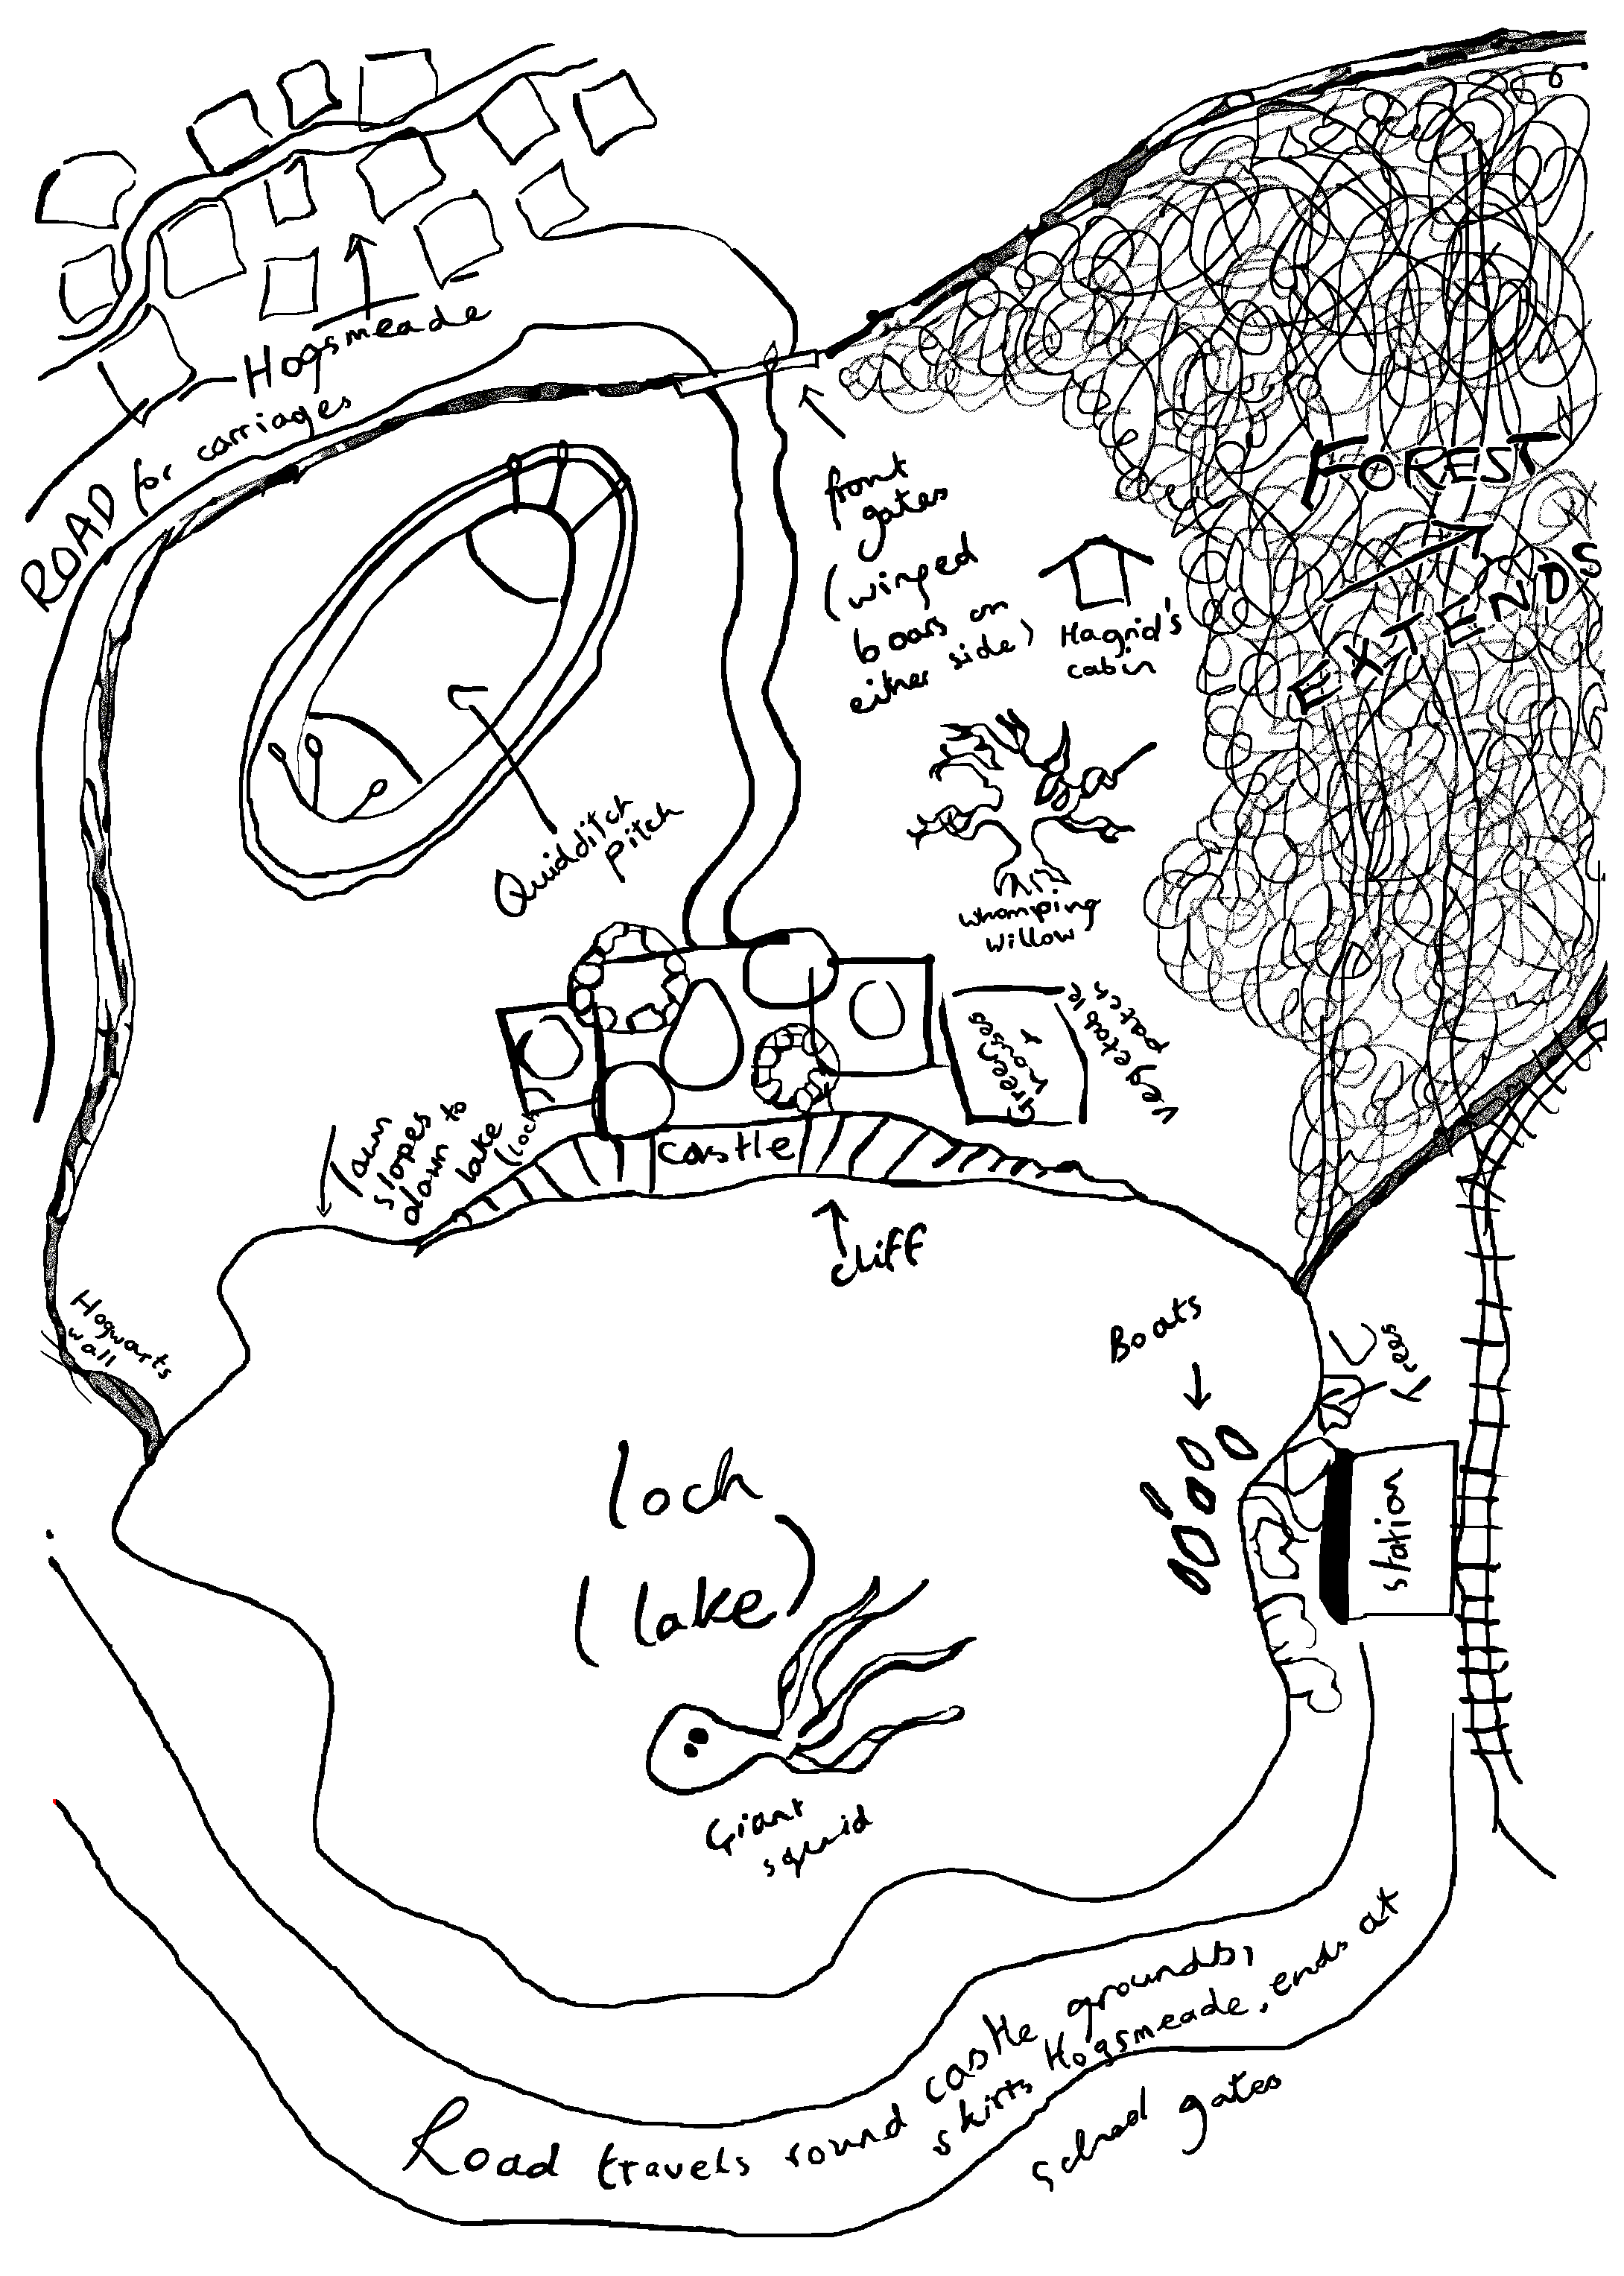 Hogsmeade
ROAD for carriages
front
gates
(winged
boars on
either side)
FOREST
EXTENDS
Hagrid's
cabin
Quidditch
pitch
whomping
willow
Green
houses
+
vegetable
patch
lawn
slopes
down to
lake
(loch
castle
cliff
Hogwarts
wall
Boats
trees
station
loch
(lake)
Giant
squid
Road travels round castle grounds,
skirts Hogsmeade, ends at
school gates